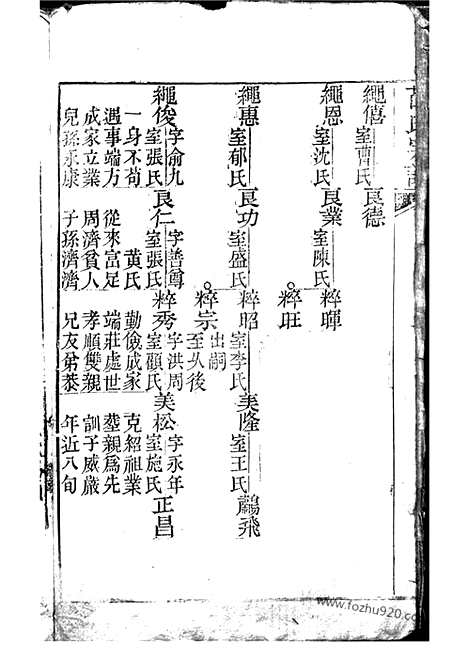 繩僖 室曹氏 良德
繩恩 室沈氏 良業 室陳氏 粹暉
粹旺
繩惠 室郁氏 良功 室盛氏 粹昭 室李氏 美隆 室王氏 鸝飛
粹宗 出嗣 至从後
繩俊 字俞九 室張氏 良仁 字善尊 室張氏 粹秀 字洪周 室顧氏 美松 字永年 室施氏 正昌
一身不苟 黄氏 勤儉成家 克紹祖業
遇事端方 從來富足 端莊處世 塟親爲先
成家立業 周濟貧人 孝順雙親 訓子威嚴
兒孫永康 子孫濟濟 兄友弟恭 年近八旬
www.fozhu920.com